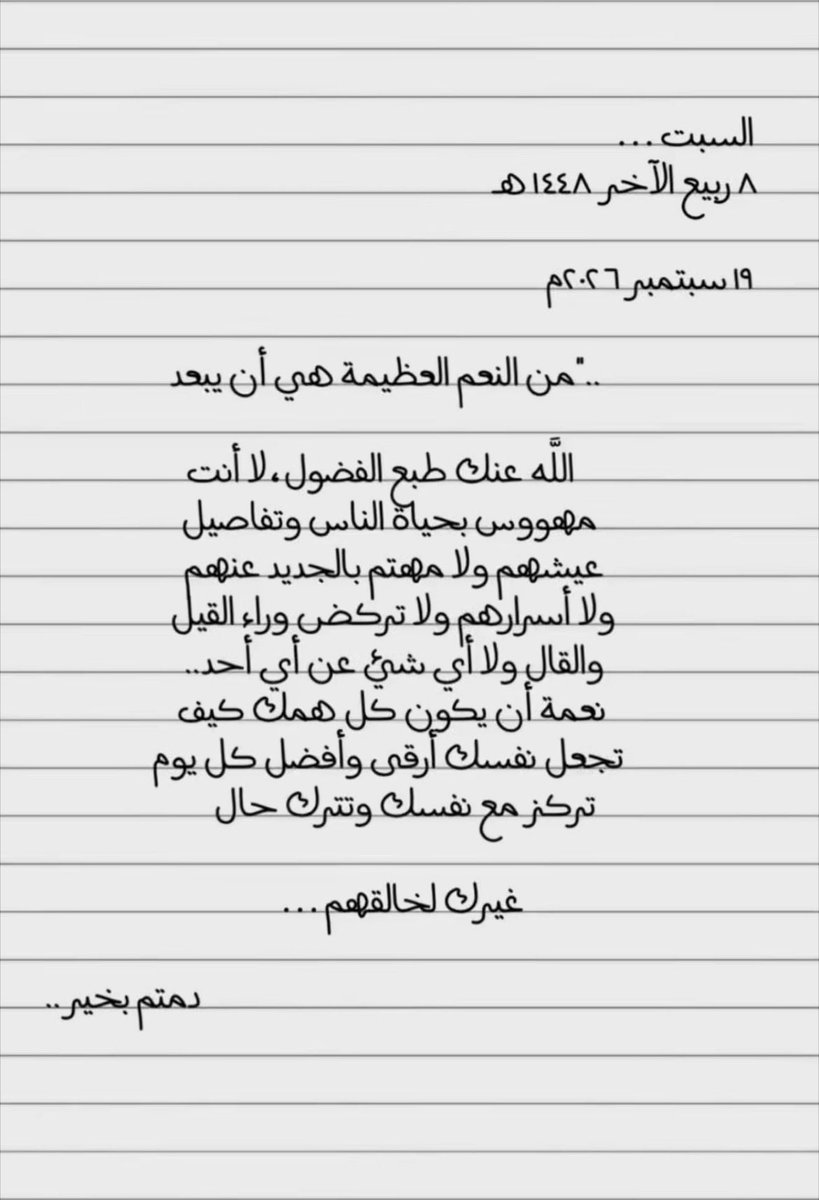 السبت ...
٨ ربيع الآخر ١٤٤٨هـ
١٩ سبتمبر ٢٠٢٦م
.."من النعم العظيمة هي أن يبعد
اللَّه عنك طبع الفضول، لا أنت
مهووس بحياة الناس وتفاصيل
عيشهم ولا مهتم بالجديد عنهم
ولا أسرارهم ولا تركض وراء القيل
والقال ولا أي شيْ عن أي أحد..
نعمة أن يكون كل همك كيف
تجعل نفسك أرقى وأفضل كل يوم
تركز مع نفسك وتترك حال
غيرك لخالقهم ...
دمتم بخير..